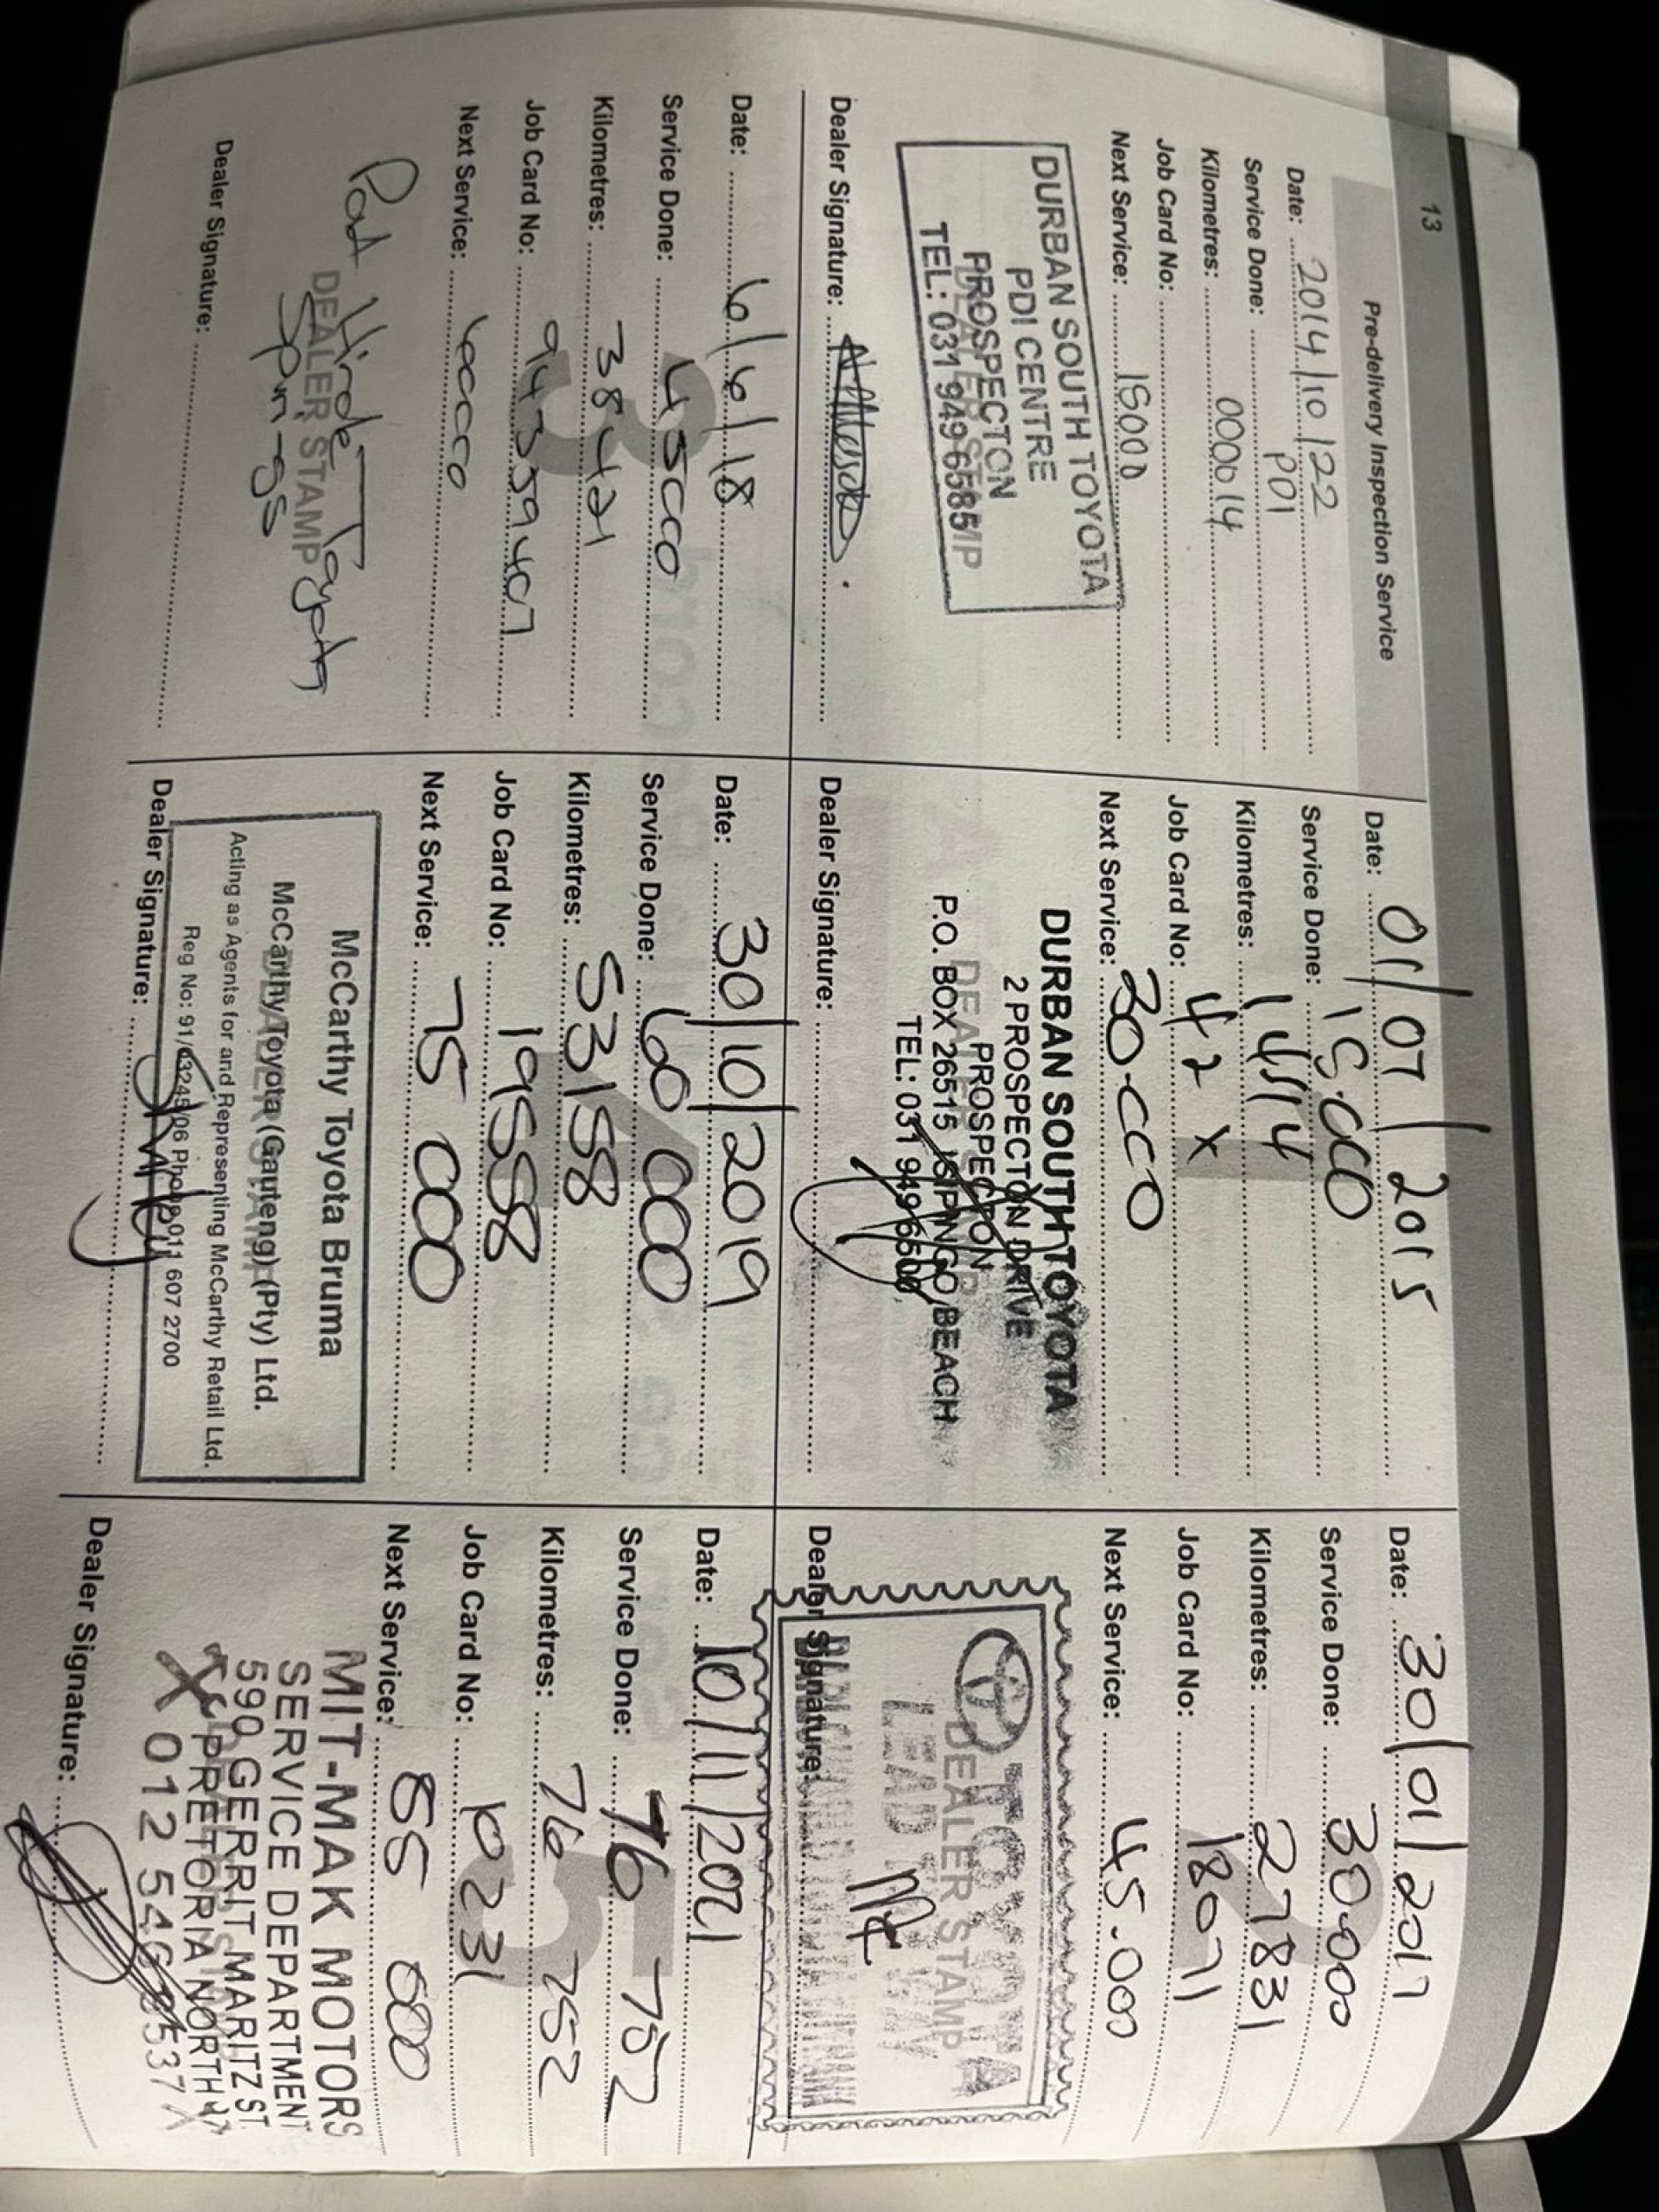 13
Pre-delivery Inspection Service
Date: 2014/10/22
Service Done: PDI
Kilometres: 000014
Job Card No:
Next Service: 15000
DURBAN SOUTH TOYOTA
PDI CENTRE
PROSPECTON
TEL: 031 949 6585
DEALER STAMP
Dealer Signature:
Date: 01/07/2015
Service Done: 15.000
Kilometres: 14514
Job Card No: 42x
Next Service: 30.000
1
DURBAN SOUTH TOYOTA
2 PROSPECTON DRIVE
PROSPECTON
P.O. BOX 26515 ISIPINGO BEACH
TEL: 031 949 6500
DEALER STAMP
Dealer Signature:
Date: 30/01/2017
Service Done: 30.000
Kilometres: 27831
Job Card No: 18071
Next Service: 45.000
2
TOYOTA
DEALER STAMP
LEAD THE WAY
Dealer Signature:
Date: 6/6/18
Service Done: 45000
Kilometres: 38421
Job Card No: 94359407
Next Service: 60000
3
Toyota
DEALER STAMP
Dealer Signature:
Date: 30/10/2019
Service Done: 60 000
Kilometres: 53158
Job Card No: 19558
Next Service: 75 000
4
McCarthy Toyota Bruma
McCarthy Toyota (Gauteng) (Pty) Ltd.
DEALER STAMP
Acting as Agents for and Representing McCarthy Retail Ltd.
Reg No: 91/03245/06 Phone 011 607 2700
Dealer Signature:
Date: 10/11/2021
Service Done: 76 752
Kilometres: 76 752
Job Card No: 10231
Next Service: 85 000
5
MIT-MAK MOTORS
SERVICE DEPARTMENT
590 GERRIT MARITZ ST.
PRETORIA NORTH
DEALER STAMP
Dealer Signature: